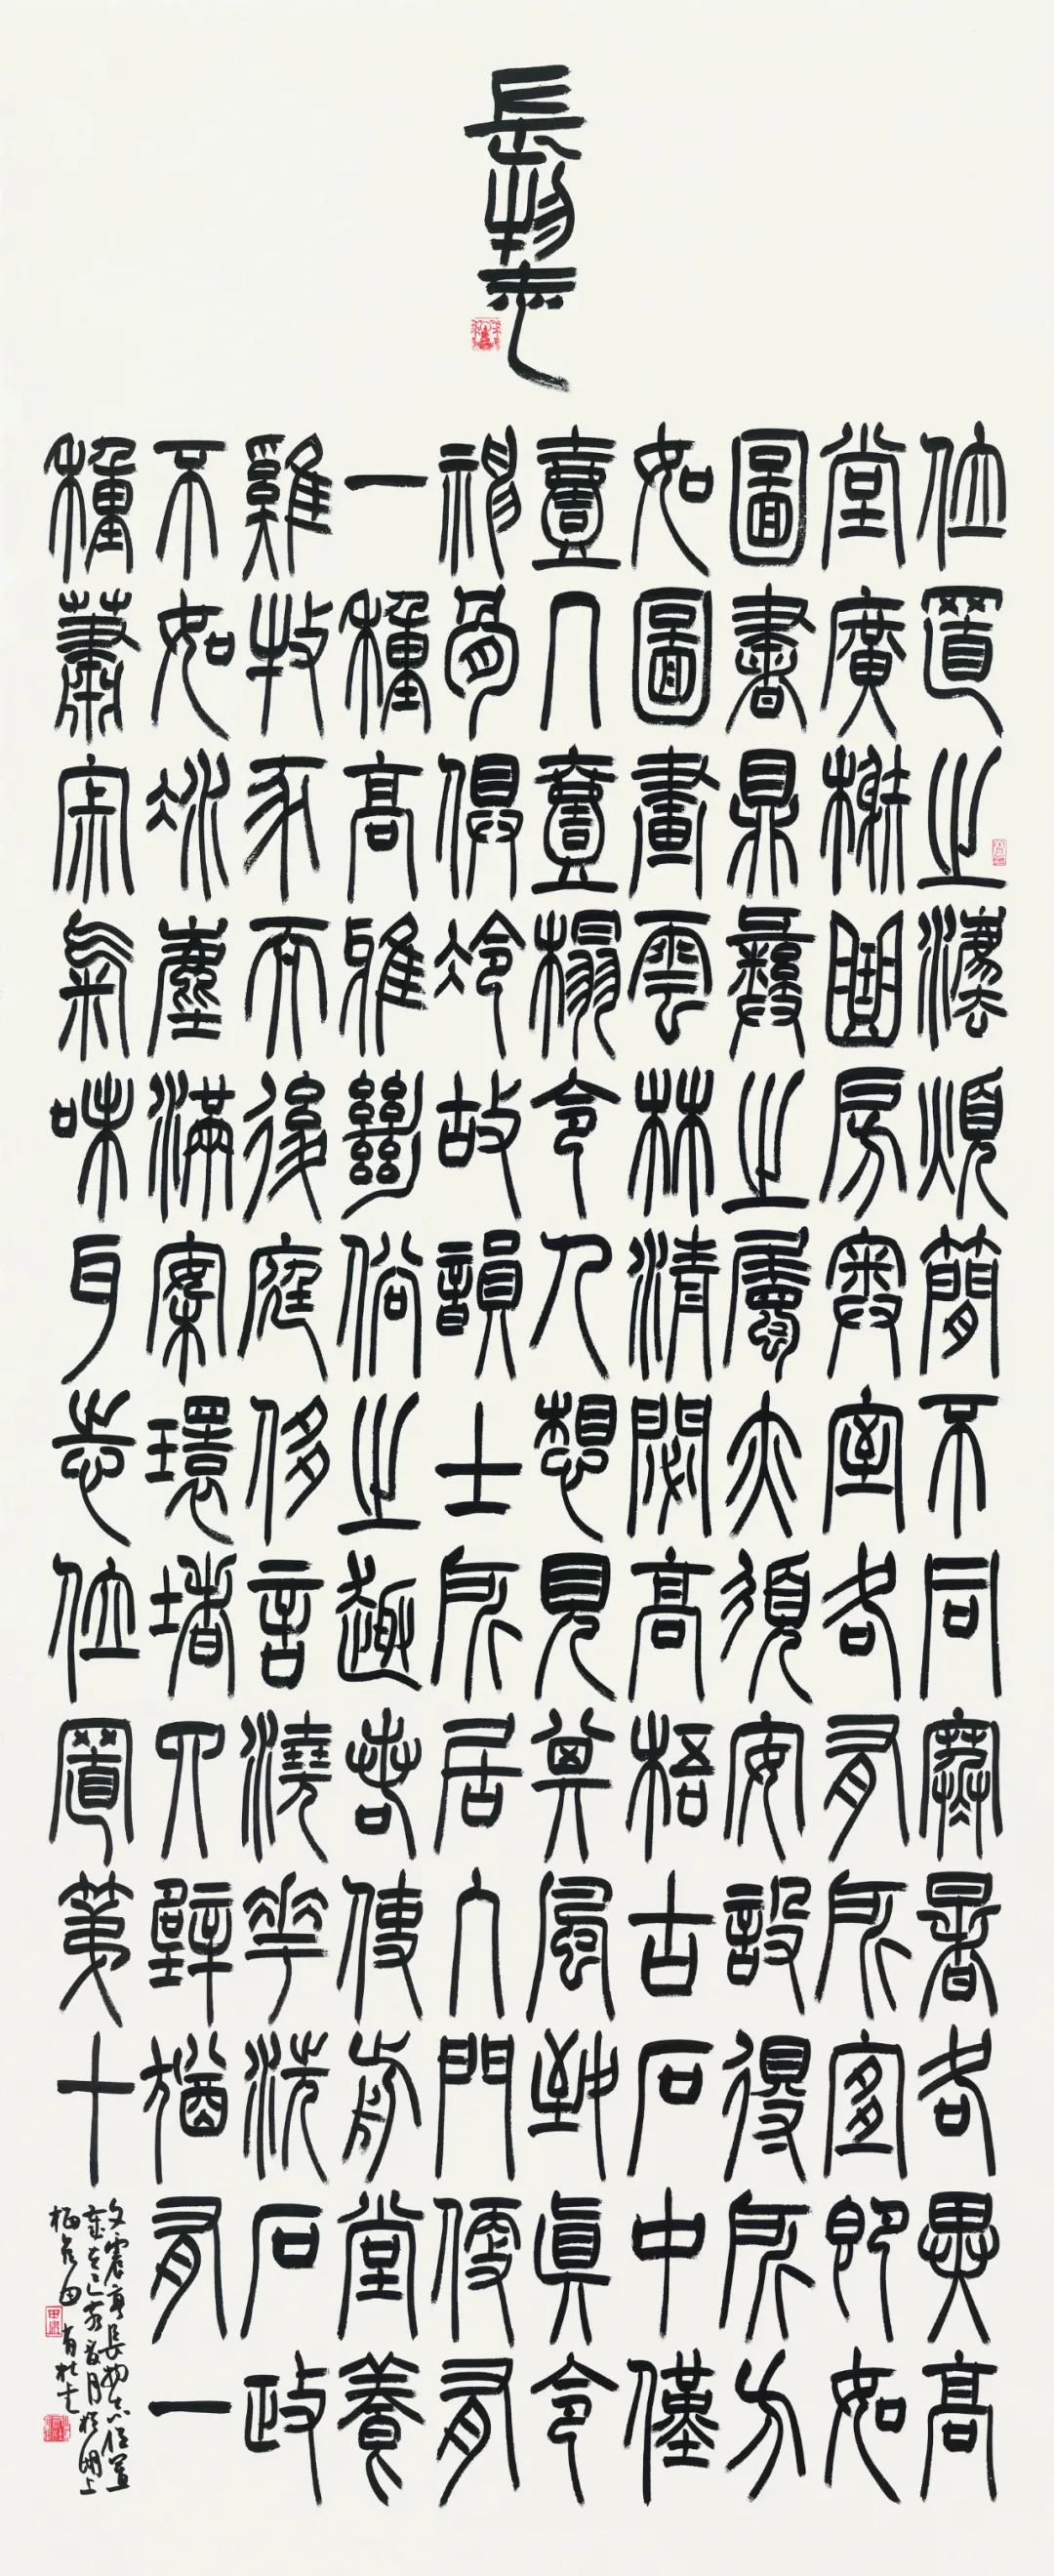 長物志
位置之濃煩簡不同寒暑各異高
堂廣榭曲房奧室各有所宜即如
圖書鼎彝之屬亦須安設得所方
如圖畫雲林清閟高梧古石中僅
一几一榻令人想見其風致真令
神骨俱冷故韻士所居入門便有
一種高雅絕俗之趣若使前堂養
雞牧豕而後庭侈言澆花洗石政
不如凝塵滿案環堵四壁猶有一
種蕭寂氣味耳志位置第十
文震亨長物志位置
月於湖上